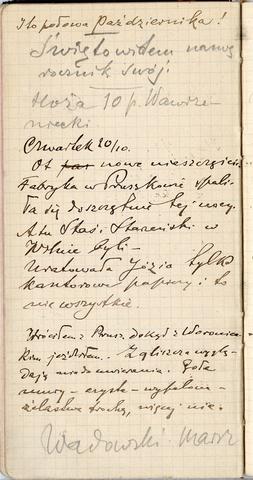 I to połowa Października!
Świętowiłem nawę
rocznik swój.
Hoża 10 p. Wawrze-
niecki
Czwartek 20/10.
Ot nowe nieszczęście.
Fabryka w Pruszkowie spali-
ła się doszczętnie tej nocy.
A tu Staś i Starzeński w
Wilnie byli –
Uratowała Józia tylko
kantorowe papiery i to
nie wszystkie.
Wróciłem z Prusz. dokąd z Woroniec-
kim jeździłem. Zgliszcza wyglą-
dają nie do uwierzenia. Gołe
mury – czysto – wypalone –
żelastwa trochę, więcej nic.
Wadowski. Marsz